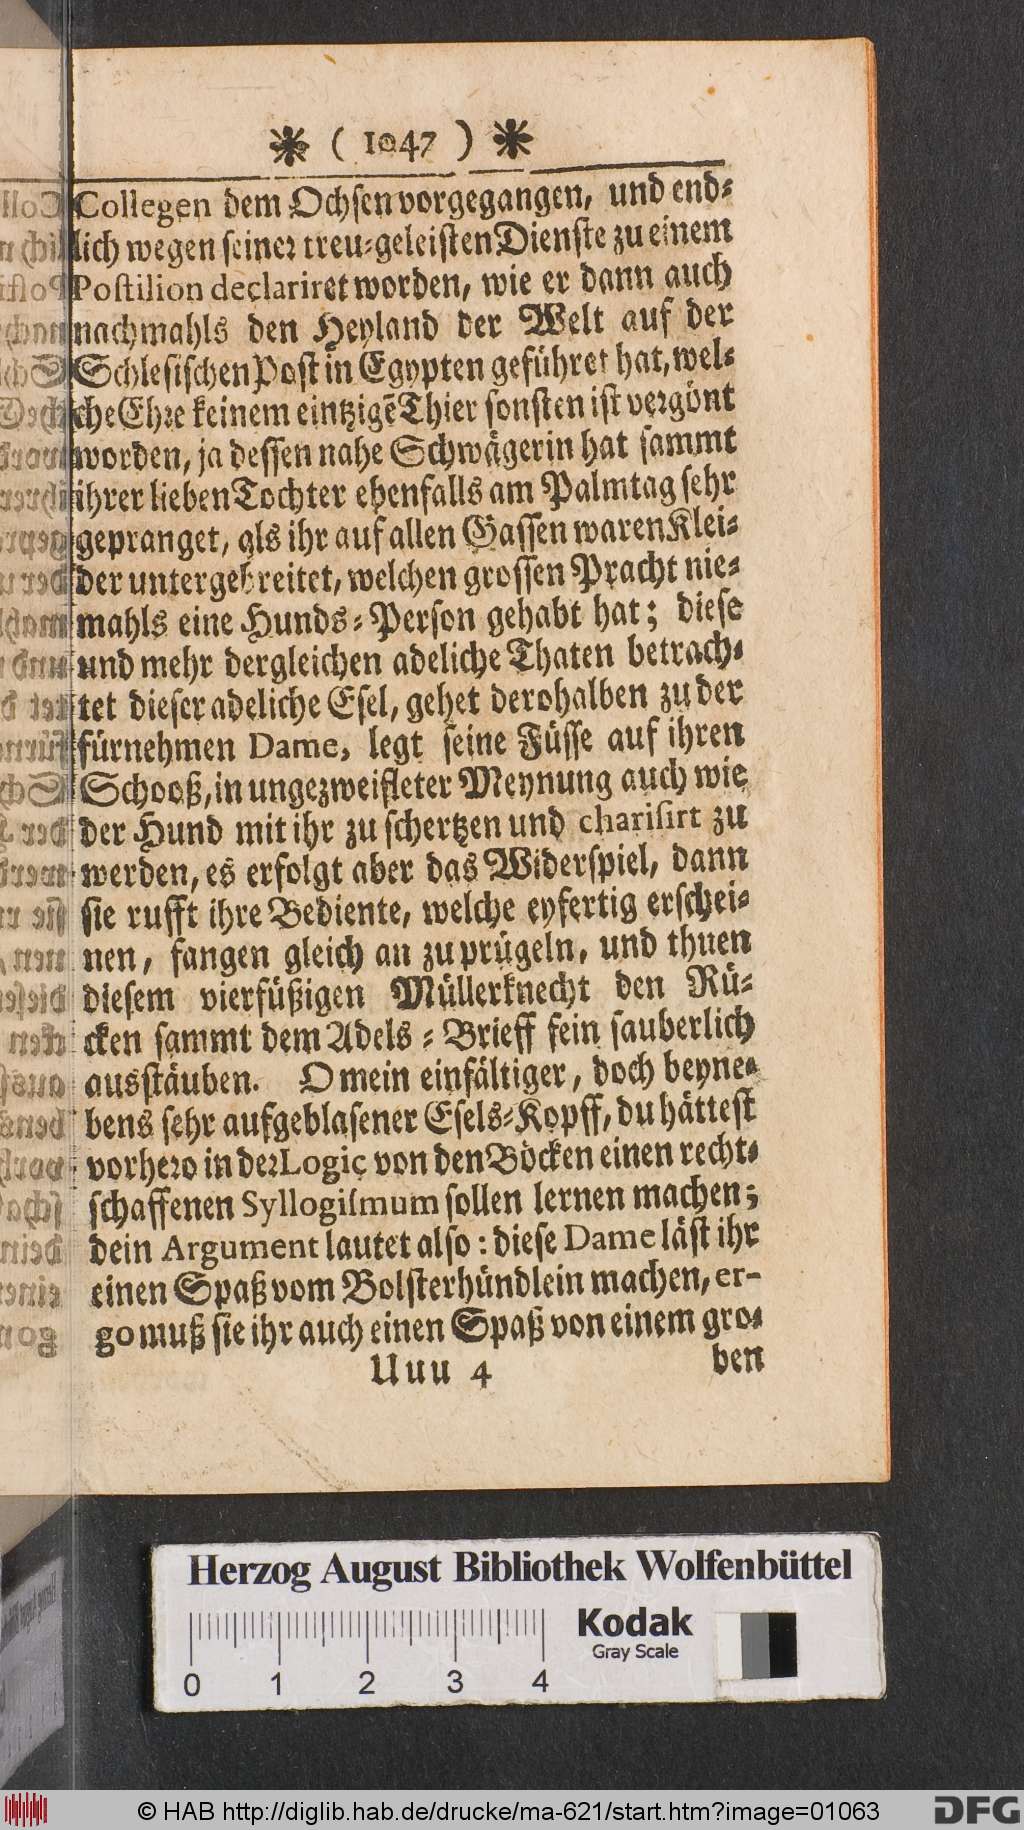 * ( 1047 ) *
Collegen dem Ochsen vorgegangen, und end-
lich wegen seiner treu-geleisten Dienste zu einem
Postilion declariret worden, wie er dann auch
nachmahls den Heyland der Welt auf der
Schlesischen Post in Egypten geführet hat, wel-
che Ehre keinem eintzigẽ Thier sonsten ist vergönt
worden, ja dessen nahe Schwägerin hat sammt
ihrer lieben Tochter ebenfalls am Palmtag sehr
gepranget, als ihr auf allen Gassen waren Klei-
der untergebreitet, welchen grossen Pracht nie-
mahls eine Hunds-Person gehabt hat; diese
und mehr dergleichen adeliche Thaten betrach-
tet dieser adeliche Esel, gehet derohalben zu der
fürnehmen Dame, legt seine Füsse auf ihren
Schooß, in ungezweifleter Meynung auch wie
der Hund mit ihr zu schertzen und charisirt zu
werden, es erfolgt aber das Widerspiel, dann
sie rufft ihre Bediente, welche eyfertig erschei-
nen, fangen gleich an zu prügeln, und thuen
diesem vierfüßigen Müllerknecht den Rü-
cken sammt dem Adels-Brieff fein sauberlich
ausstäuben. O mein einfältiger, doch beyne-
bens sehr aufgeblasener Esels-Kopff, du hättest
vorhero in der Logic von den Böcken einen recht-
schaffenen Syllogismum sollen lernen machen;
dein Argument lautet also: diese Dame läst ihr
einen Spaß vom Bolsterhündlein machen, er-
go muß sie ihr auch einen Spaß von einem gro-
Uuu 4 ben
Herzog August Bibliothek Wolfenbüttel
Kodak
Gray Scale
0 1 2 3 4
© HAB http://diglib.hab.de/drucke/ma-621/start.htm?image=01063
DFG